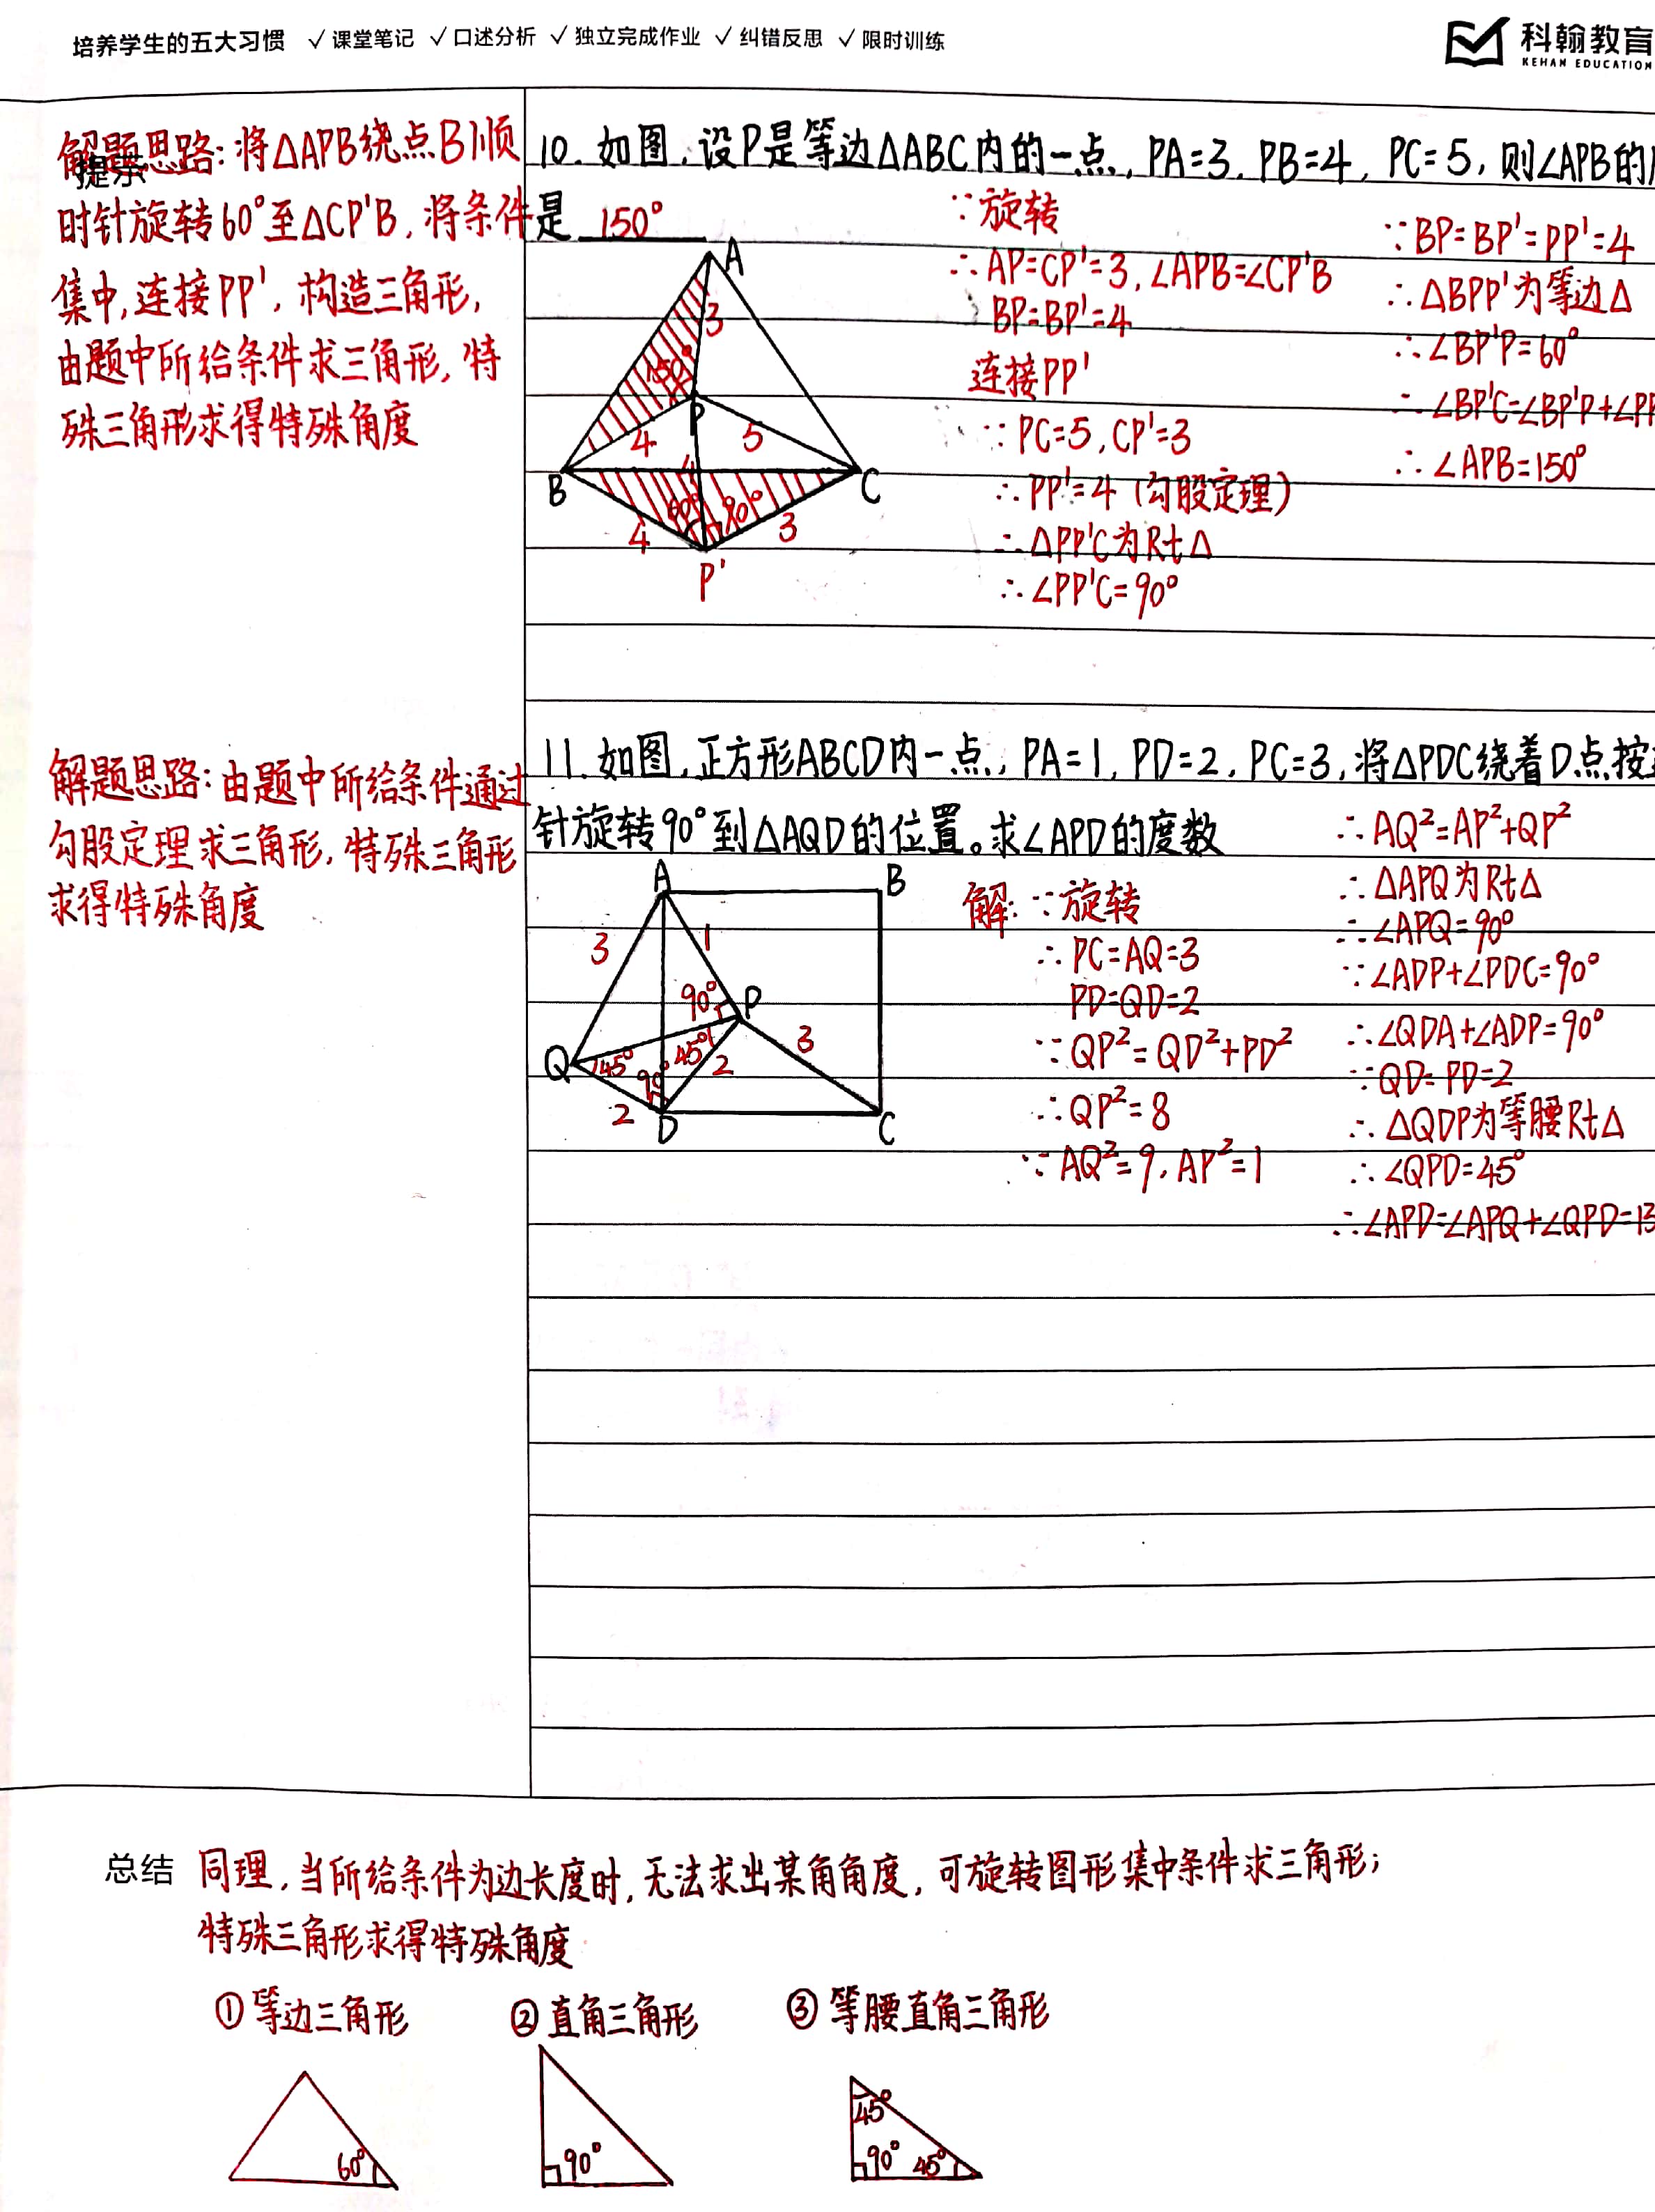 培养学生的五大习惯 ✓课堂笔记 ✓口述分析 ✓独立完成作业 ✓纠错反思 ✓限时训练
科翰教育
KEHAN EDUCATION
提示
解题思路:将△APB绕点B顺
时针旋转60°至△CP'B,将条件
集中,连接PP',构造三角形,
由题中所给条件求三角形,特
殊三角形求得特殊角度
10.如图,设P是等边△ABC内的一点,PA=3,PB=4,PC=5,则∠APB的
是 150°
A
3
150°
P
4
5
4
B
C
60°
90°
4
3
P'
∵旋转
∴AP=CP'=3,∠APB=∠CP'B
BP=BP'=4
连接PP'
∵PC=5,CP'=3
∴PP'=4(勾股定理)
∴△PP'C为Rt△
∴∠PP'C=90°
∵BP=BP'=PP'=4
∴△BPP'为等边△
∴∠BP'P=60°
∴∠BP'C=∠BP'P+∠PP
∴∠APB=150°
解题思路:由题中所给条件通过
勾股定理求三角形,特殊三角形
求得特殊角度
11.如图,正方形ABCD内一点,PA=1,PD=2,PC=3,将△PDC绕着D点按
针旋转90°到△AQD的位置。求∠APD的度数
A
B
3
1
90°
P
45°
3
Q
45°
2
90°
2
D
C
解:∵旋转
∴PC=AQ=3
PD=QD=2
∵QP²=QD²+PD²
∴QP²=8
∵AQ²=9,AP²=1
∴AQ²=AP²+QP²
∴△APQ为Rt△
∴∠APQ=90°
∵∠ADP+∠PDC=90°
∴∠QDA+∠ADP=90°
∵QD=PD=2
∴△QDP为等腰Rt△
∴∠QPD=45°
∴∠APD=∠APQ+∠QPD=13
总结 同理,当所给条件为边长度时,无法求出某角角度,可旋转图形集中条件求三角形;
特殊三角形求得特殊角度
①等边三角形 ②直角三角形 ③等腰直角三角形
60°
90°
45°
90° 45°